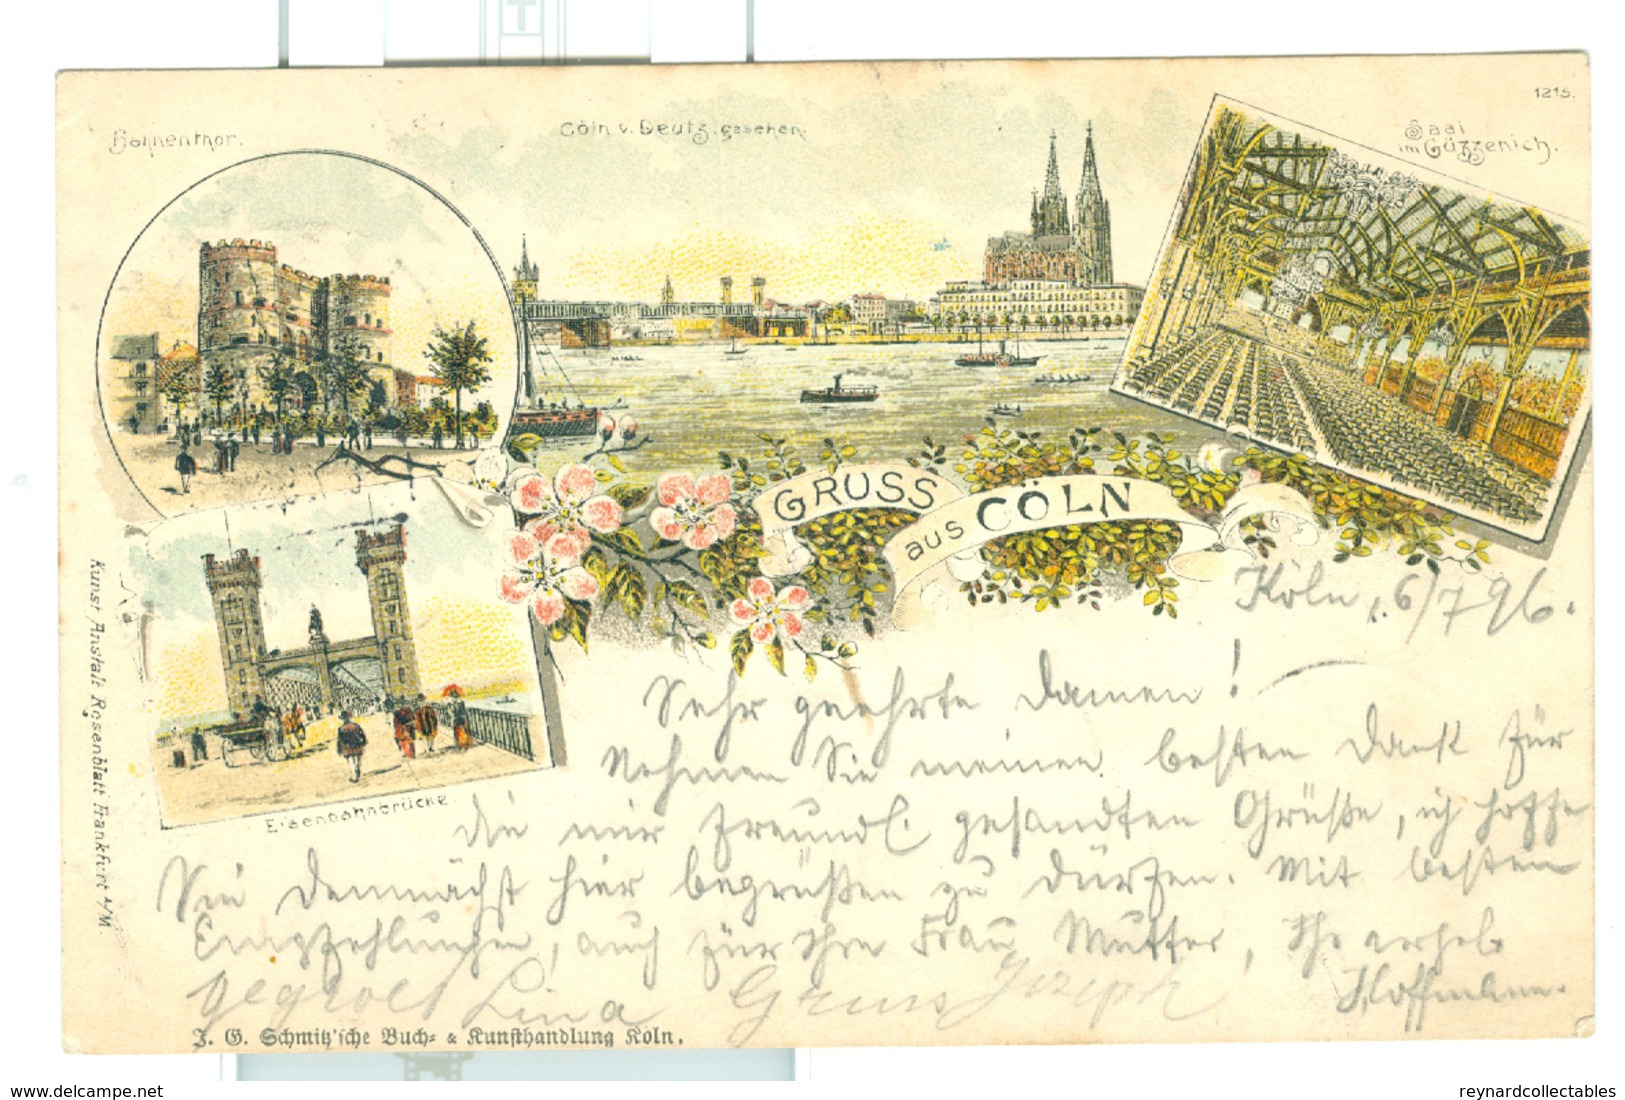 1215.
Hahnenthor.
Cöln v. Deutz gesehen.
Saal
im Gürzenich.
GRUSS
aus CÖLN
Eisenbahnbrücke.
Kunst Anstalt Rosenblatt Frankfurt a/M.
Köln, 6/7 96.
Sehr geehrte Damen!
Nehmen Sie meinen besten Dank für
die mir freundl. gesandten Grüße, ich hoffe
Sie demnächst hier begrüßen zu dürfen. Mit besten
Empfehlungen, auch für Ihre Frau Mutter, Ihr ergeb.
Hoffmann.
Lina Gruss Joseph
J. G. Schmitz'sche Buch- & Kunsthandlung Köln.
www.delcampe.net
reynardcollectables